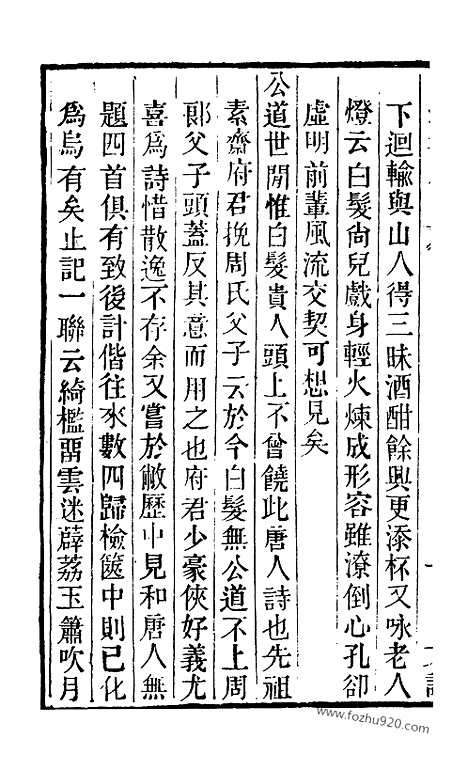 下迴輸與山人得三昧酒酣餘興更添杯又咏老人
燈云白髮尙兒戲身輕火煉成形容雖潦倒心孔卻
虛明前輩風流交契可想見矣
公道世閒惟白髮貴人頭上不曾饒此唐人詩也先祖
素齋府君挽周氏父子云於今白髮無公道不上周
郞父子頭蓋反其意而用之也府君少豪俠好義尤
喜爲詩惜散逸不存余又嘗於敝歷中見和唐人無
題四首俱有致後計偕往來數四歸檢篋中則已化
爲烏有矣止記一聯云綺檻畱雲迷薜荔玉簫吹月
www.fozhu920.com